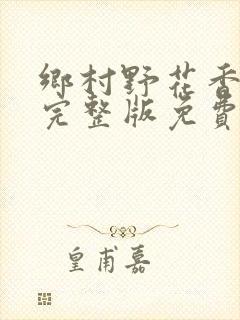 鄉村野花香
完整版免費
皇甫嘉